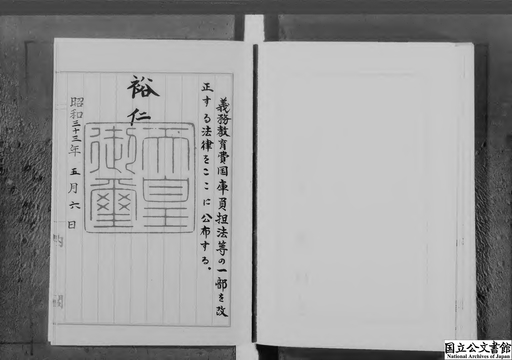 義務教育費国庫負担法等の一部を改
正する法律をここに公布する。
裕仁
天皇
御璽
昭和三十三年五月六日
国立公文書館
National Archives of Japan